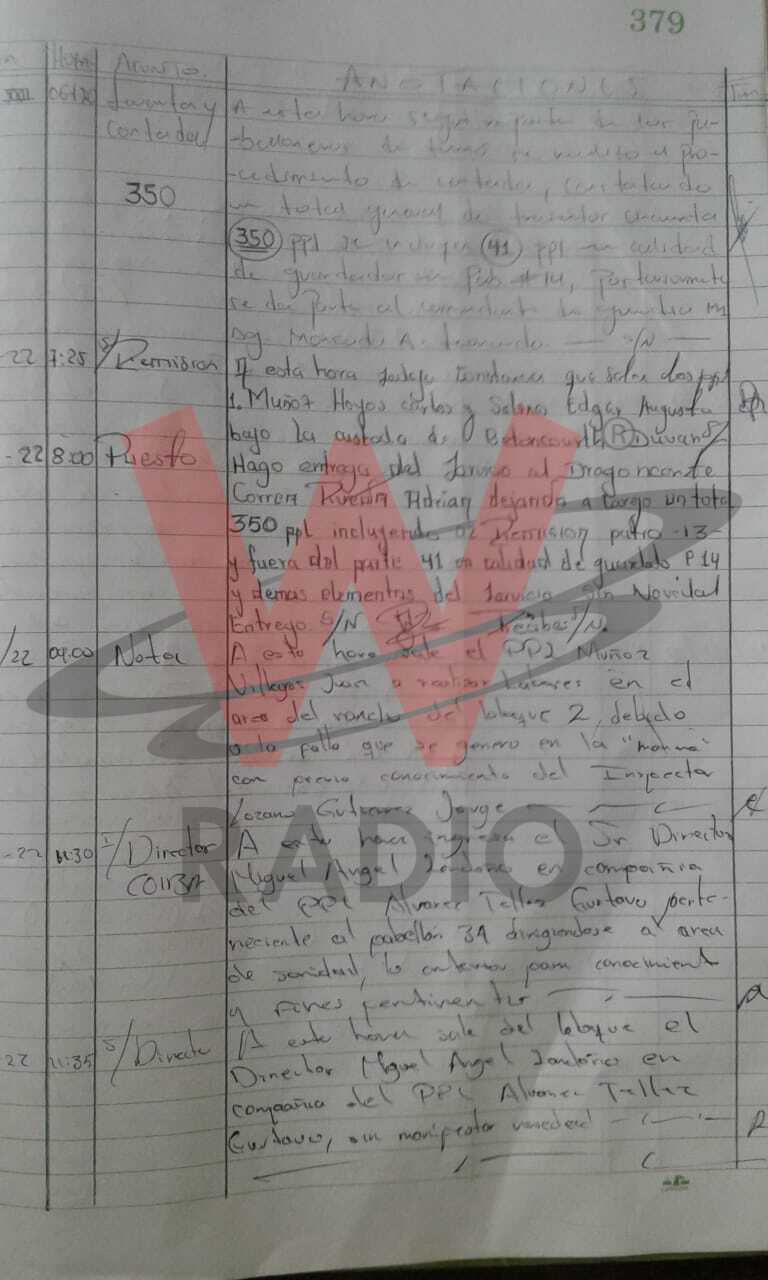 379
Hora Asunto. ANOTACIONES
06:20 Levanta y A esta hora según reporte de los pa-
Contada belloneros de turno se realizó el pro-
cedimiento de contada, constatando
350 un total general de trescientos cincuenta
350 ppl se incluyen 41 ppl en calidad
de guardados en Pab #14,
se da parte al comandante de guardia
Dg. S/N
22 7:25 S/Remision A esta hora dejo constancia que salen dos ppl
1. Muñoz Hoyos Carlos y Edgar Augusto
bajo la custodia de Betancourth R Duvan
-22 8:00 Puesto Hago entrega del Servicio al Dragoneante
Correa Adrian dejando a cargo un total
350 ppl incluyendo 02 Remision patio -13-
y fuera del parte 41 en calidad de guardado P14
y demas elementos del Servicio Sin Novedad
Entrego S/N Recibe S/N.
/22 09:00 Nota A esta hora sale el PPL Muñoz
Villegas Juan a realizar labores en el
area del rancho del bloque 2, debido
a la falla que se genero en la
con previo conocimiento del Inspector
Lozano Gutierrez Jorge
-22 11:30 I/Director A esta hora ingresa el Sr Director
COIBA Miguel Angel en compañia
del PPL Alvarez Tellez Gustavo perte-
neciente al pabellón 3A dirigiendose al area
de sanidad, lo anterior para conocimient
y fines pertinentes
22 11:35 S/Directo A esta hora sale del bloque el
Director Miguel Angel en
compañia del PPL Alvarez Tellez
Gustavo, sin manifestar novedad
W
RADIO